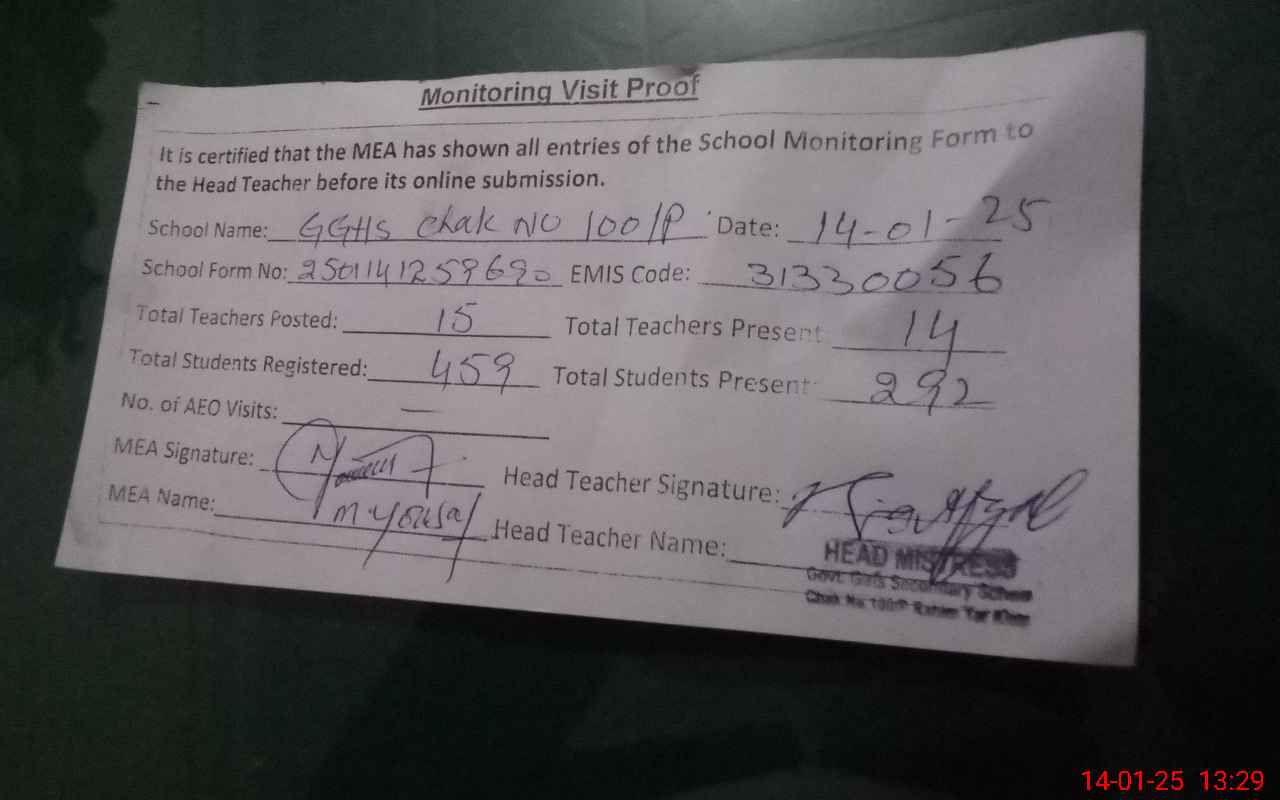 Monitoring Visit Proof
It is certified that the MEA has shown all entries of the School Monitoring Form to
the Head Teacher before its online submission.
School Name: GGHS Chak NO 100/P Date: 14-01-25
School Form No: 2501141259690 EMIS Code: 31330056
Total Teachers Posted: 15 Total Teachers Present: 14
Total Students Registered: 459 Total Students Present: 292
No. of AEO Visits: —
MEA Signature: Head Teacher Signature:
MEA Name: M. Yousaf Head Teacher Name:
HEAD MISTRESS
Govt. Girls Secondary School
Chak No. 100/P Rahim Yar Khan
14-01-25 13:29